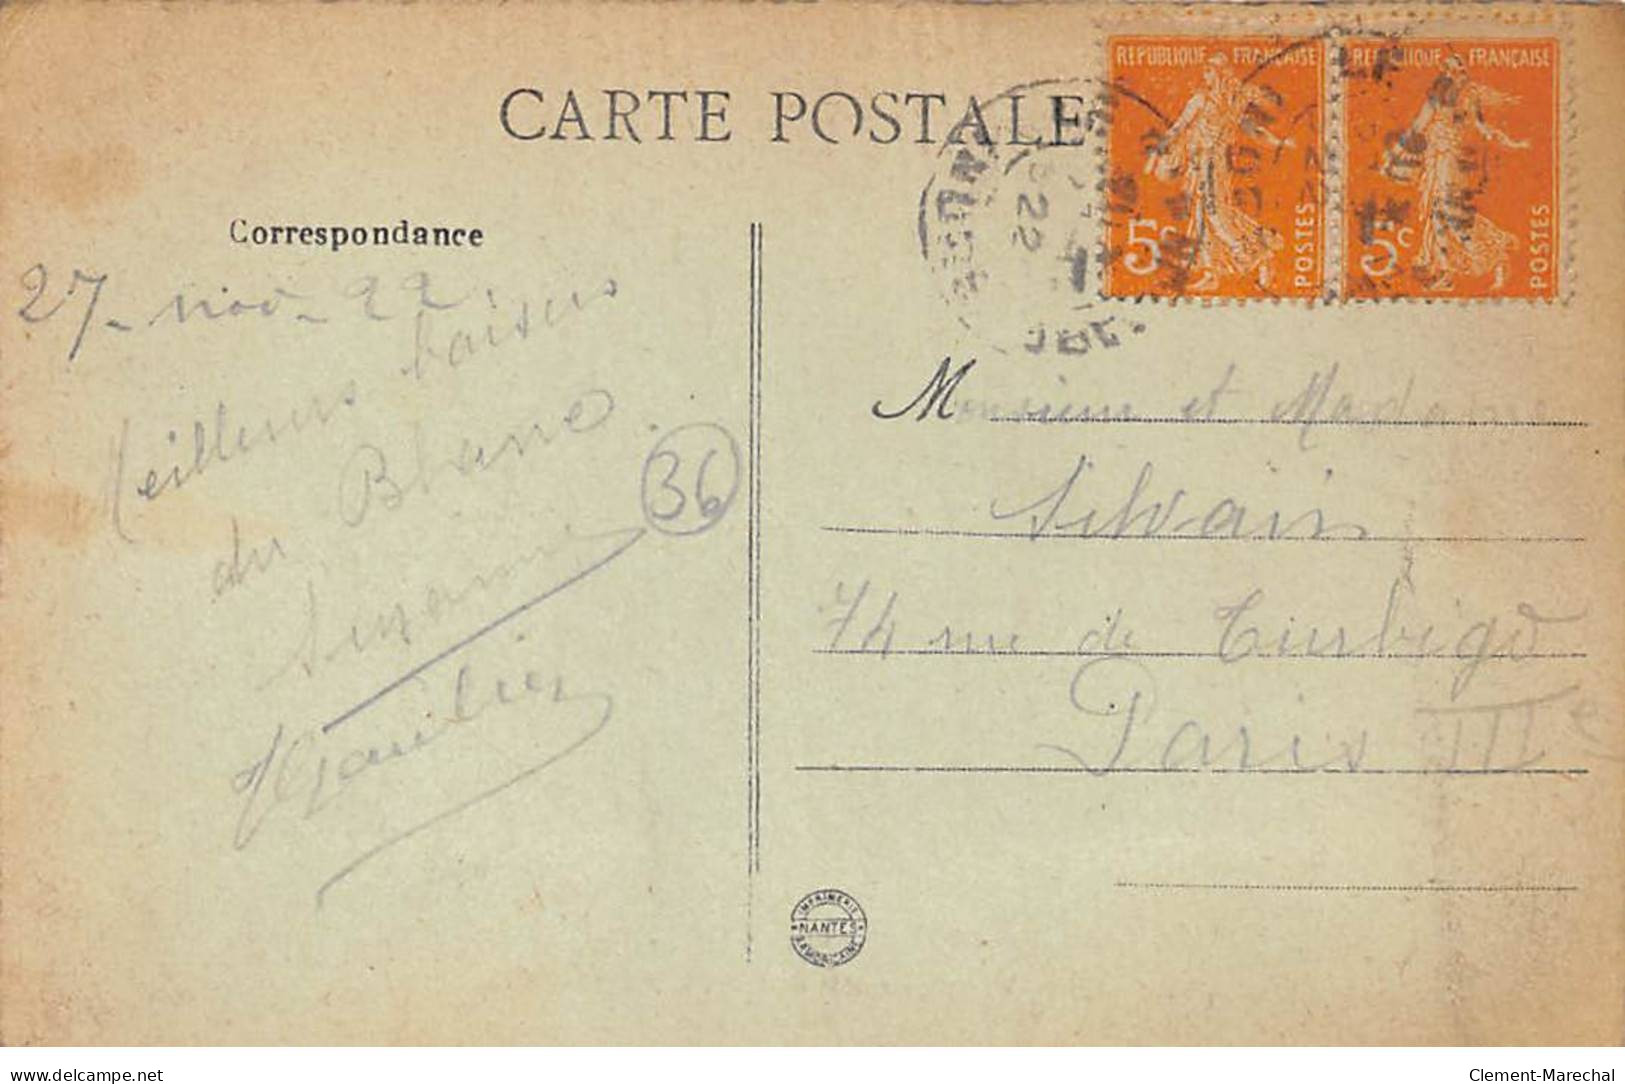 CARTE POSTALE
RÉPUBLIQUE FRANÇAISE
5c
POSTES
RÉPUBLIQUE FRANÇAISE
5c
POSTES
22
INDRE
Correspondance
27 - nov - 22.
Meilleurs baisers
du Blanc.
Suzanne
HGaultier
36
Monsieur et Madame
Silvain
74 rue de Turbigo
Paris IIIe
IMPRIMERIE
NANTES
ARMORICAINE
delcampe.net
Clement-Marechal